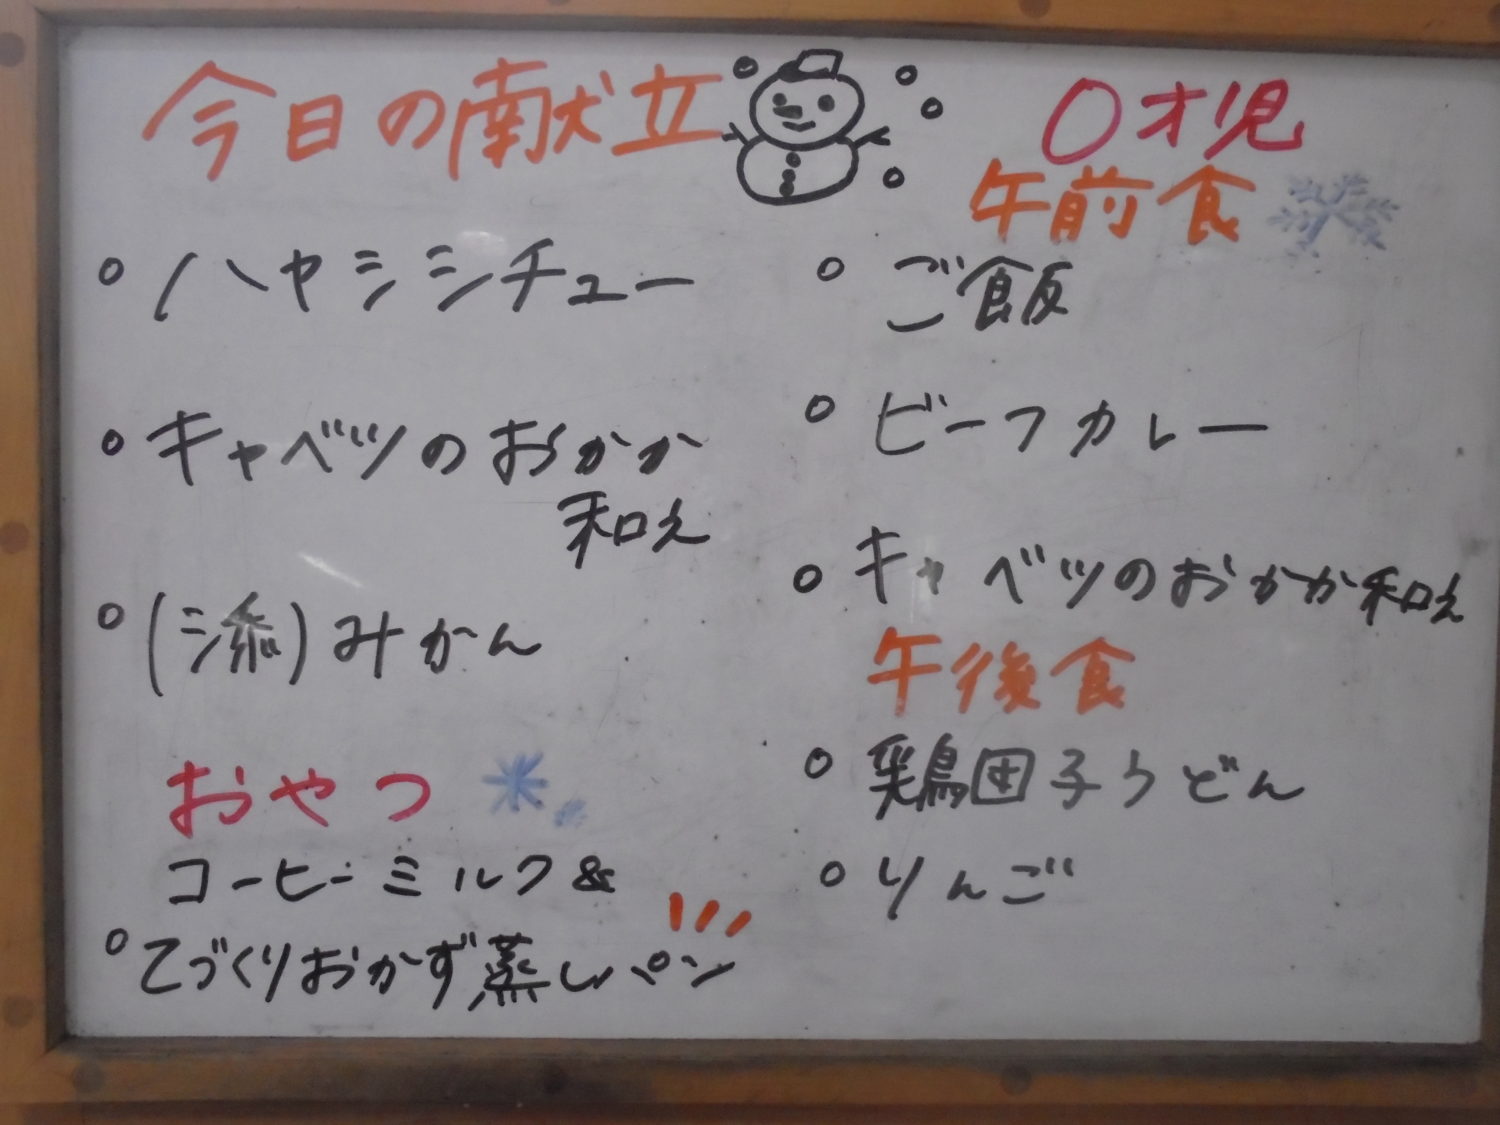 今日の献立
ハヤシシチュー
キャベツのおかか
和え
(添)みかん
おやつ
コーヒーミルク&
てづくりおかず蒸しパン
0才児
午前食
ご飯
ビーフカレー
キャベツのおかか和え
午後食
鶏団子うどん
りんご